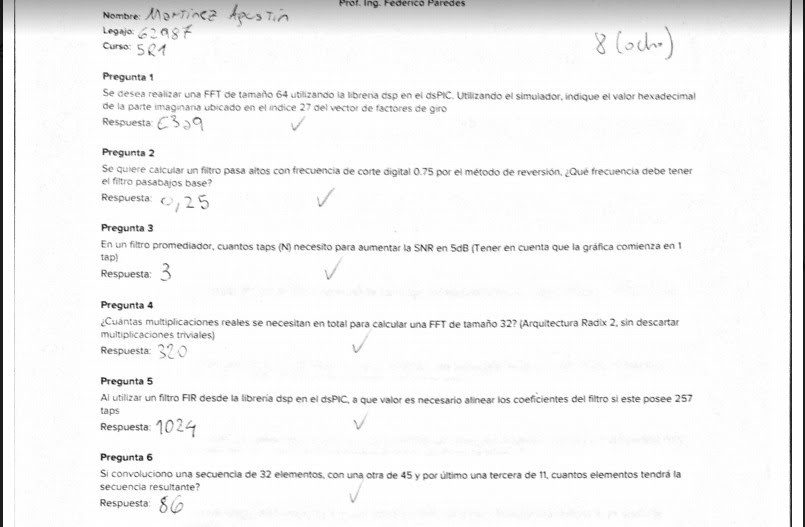 Prof. Ing. Federico Paredes
Nombre: Martinez Agustin
Legajo: 62987
Curso: 5R1
8 (ocho)
Pregunta 1
Se desea realizar una FFT de tamaño 64 utilizando la librería dsp en el dsPIC. Utilizando el simulador, indique el valor hexadecimal
de la parte imaginaria ubicado en el índice 27 del vector de factores de giro
Respuesta:
Pregunta 2
Se quiere calcular un filtro pasa altos con frecuencia de corte digital 0.75 por el método de reversión, ¿Qué frecuencia debe tener
el filtro pasabajos base?
Respuesta: 0,25
Pregunta 3
En un filtro promediador, cuantos taps (N) necesito para aumentar la SNR en 5dB (Tener en cuenta que la gráfica comienza en 1
tap)
Respuesta: 3
Pregunta 4
¿Cuántas multiplicaciones reales se necesitan en total para calcular una FFT de tamaño 32? (Arquitectura Radix 2, sin descartar
multiplicaciones triviales)
Respuesta: 320
Pregunta 5
Al utilizar un filtro FIR desde la librería dsp en el dsPIC, a que valor es necesario alinear los coeficientes del filtro si este posee 257
taps
Respuesta: 1024
Pregunta 6
Si convoluciono una secuencia de 32 elementos, con una otra de 45 y por último una tercera de 11, cuantos elementos tendrá la
secuencia resultante?
Respuesta: 86